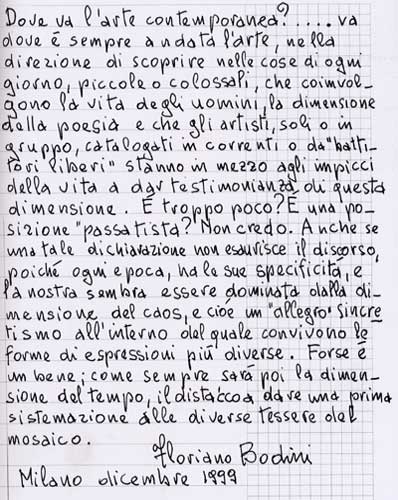 Dove va l'arte contemporanea?..... va
dove è sempre andata l'arte, nella
direzione di scoprire nelle cose di ogni
giorno, piccole o colossali, che coinvol-
gono la vita degli uomini, la dimensione
della poesia e che gli artisti, soli o in
gruppo, catalogati in correnti o da "batti-
tori liberi" stanno in mezzo agli impicci
della vita a dar testimonianza di questa
dimensione. È troppo poco? È una po-
sizione "passatista"? Non credo. Anche se
una tale dichiarazione non esaurisce il discorso,
poiché ogni epoca, ha le sue specificità, e
la nostra sembra essere dominata dalla di-
mensione del caos, e cioè un "allegro" sincre
tismo all'interno del quale convivono le
forme di espressioni più diverse. Forse è
un bene; come sempre sarà poi la dimen-
sione del tempo, il distacco a dare una prima
sistemazione alle diverse tessere del
mosaico.
Floriano Bodini
Milano dicembre 1999